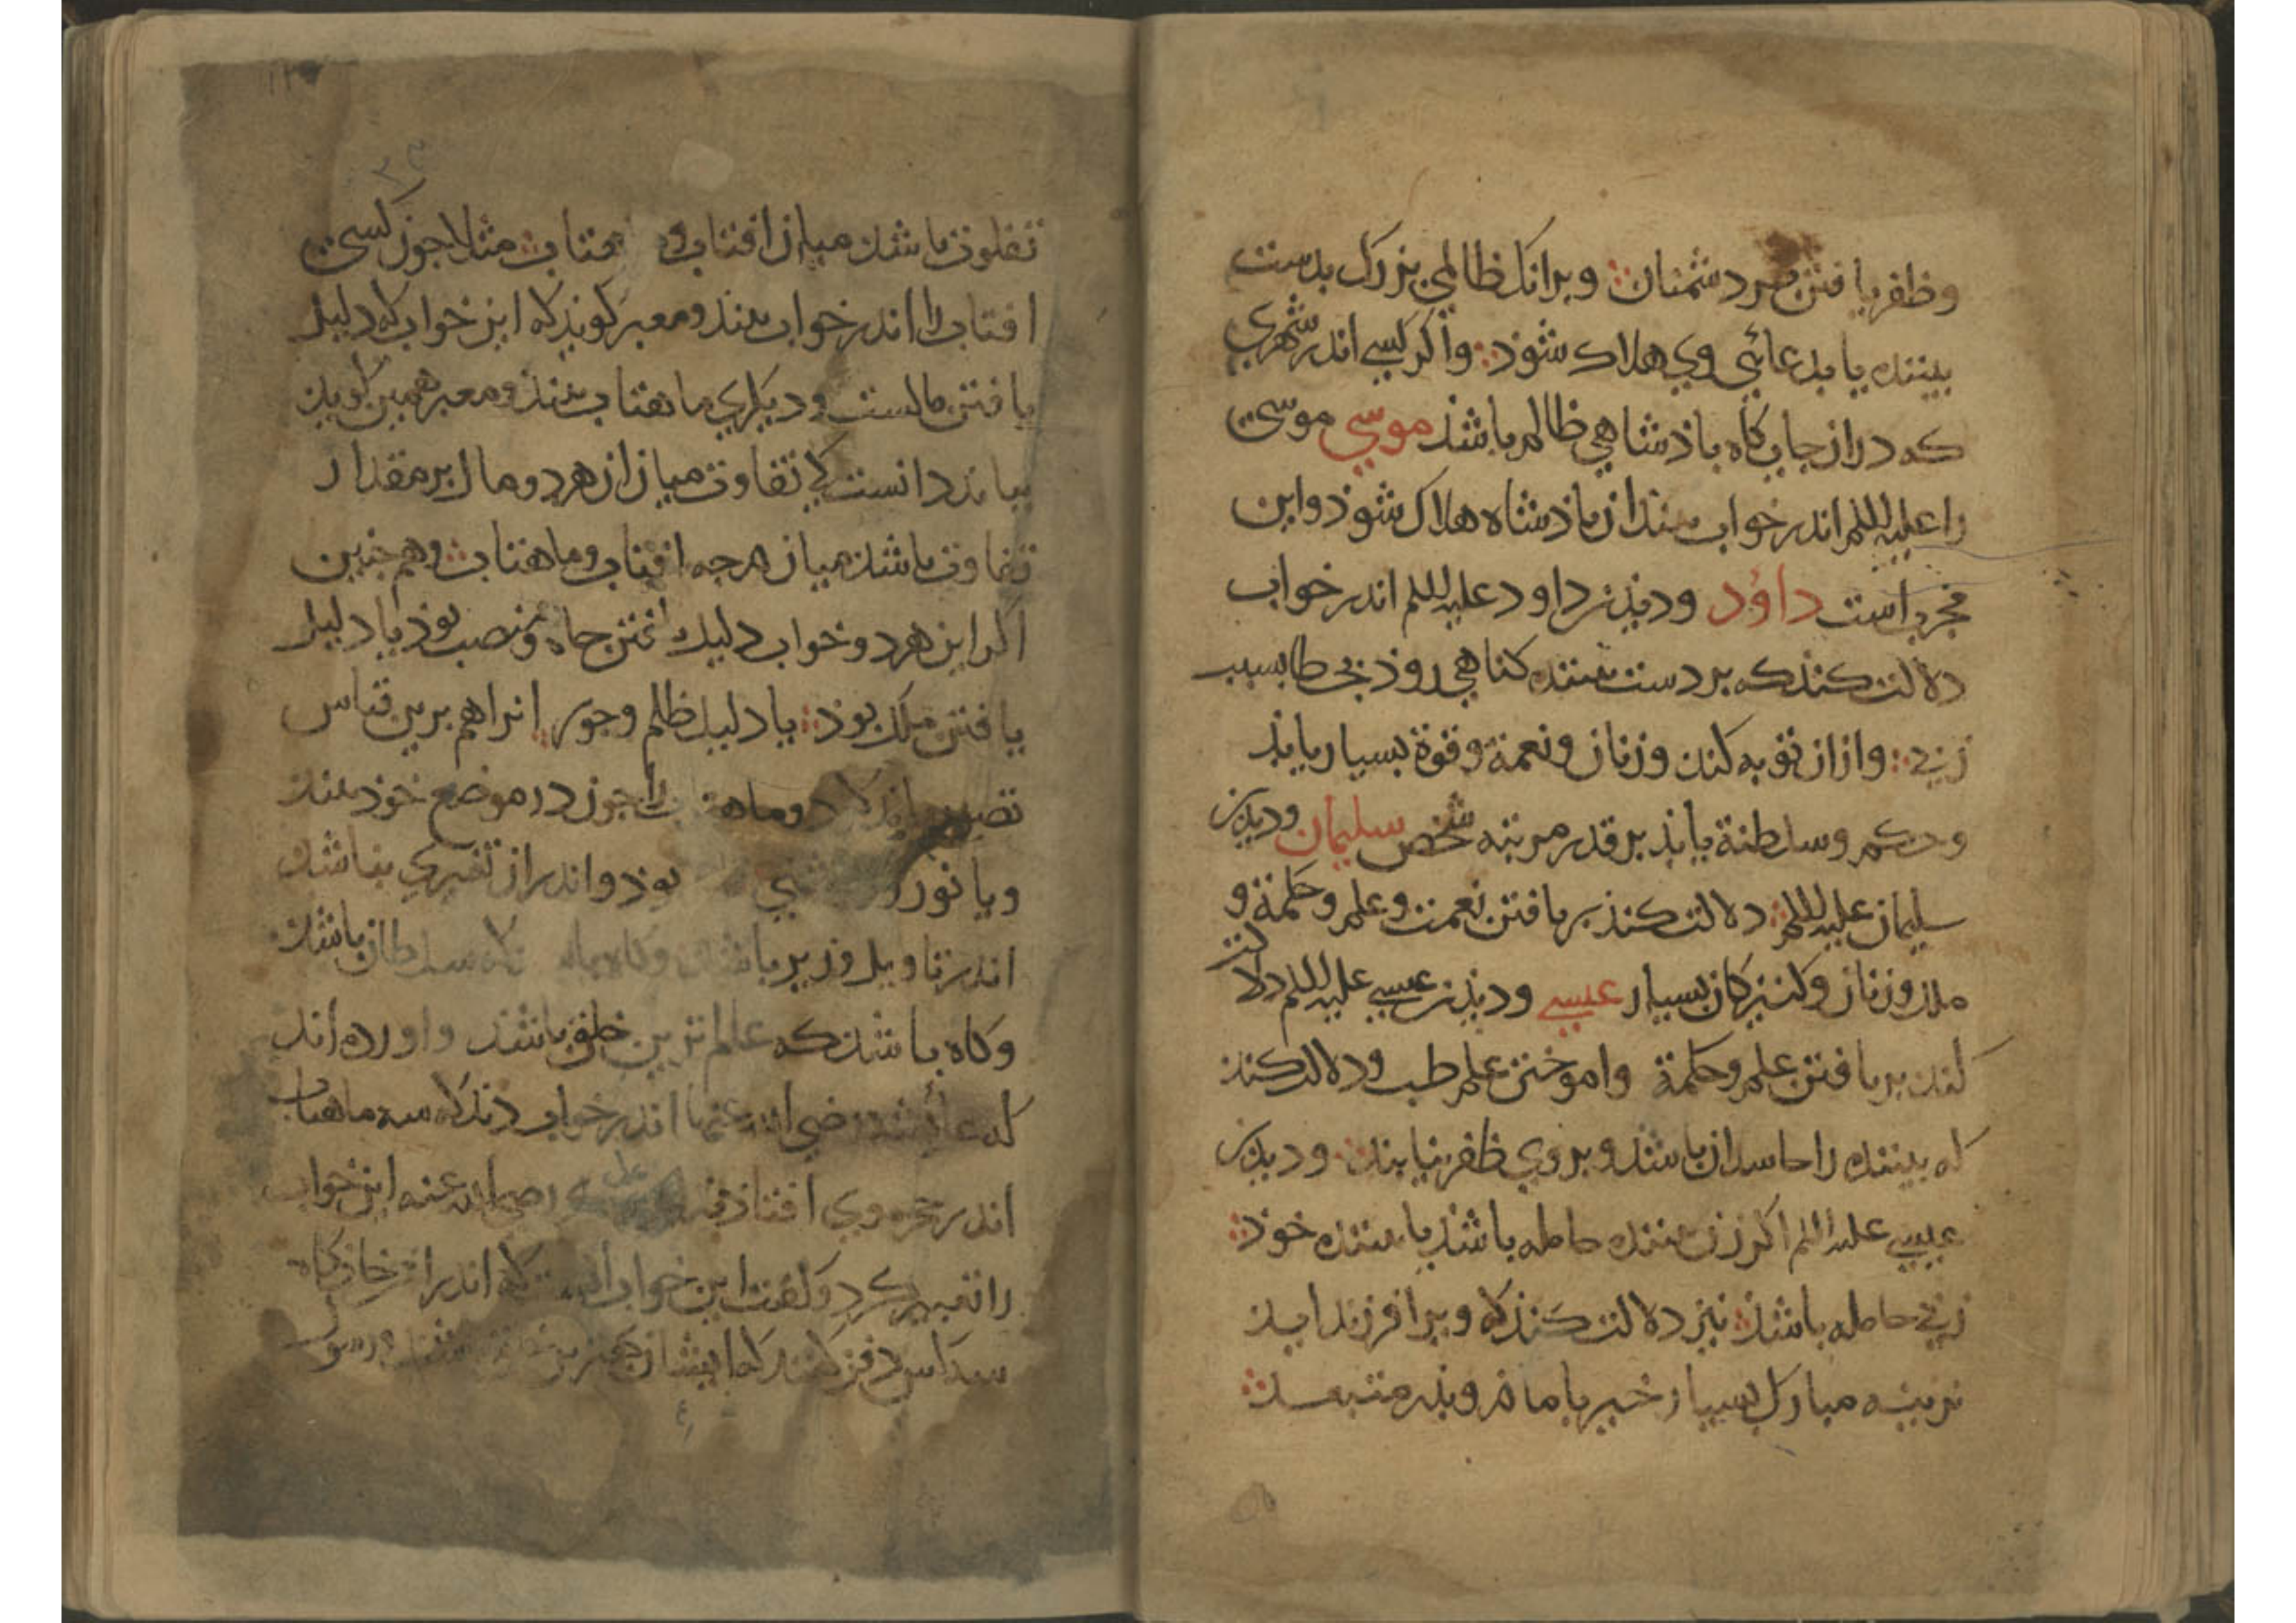 وظفر یافتن بر دشمنان وبرانک ظالمی بزرک بدست
بیننده یا بدعائی وی هلاک شوذ واکر کسی اندر شهری
که دران جایکاه باذشاهی ظالم باشذ موسی موسی
را علیه السلم اندر خواب بیند ان باذشاه هلاک شوذ واین
مجرب است داؤد ودیذن داود علیه السلم اندر خواب
دلالت کندکه بر دست بیننده کناهی روذ بخطا بسبب
زنی وازان توبه کند وزنان ونعمة وقوة بسیار یابذ
وحکم وسلطنة یابذ بر قدر مرتبه شخص سلیمان ودیدن
سلیمان علیه السلم دلالت کنذ بر یافتن نعمت وعلم وحکمة و
ملک وزنان وکنیزکان بسیار عیسی ودیذن عیسی علیه السلم دلالت
کند بر یافتن علم وحکمة واموختن علم طب ودلالت کند
که بیننده را حاسدان باشد وبروی ظفر نیابند ودیدن
عیسی علیه السلم اکر زن بیننده حامله باشذ یا بیننده خوذ
زنی حامله باشذ نیز دلالت کنذکه ویرا فرزند ایذ
نرینه مبارک بسیار خیر با مادر وپذر
تفاوت باشد میان افتاب و مهتاب مثلا جون کسی
افتاب را اندر خواب بیند ومعبر کویذکه این خواب که دلیل
یافتن مالست ودیکری ماهتاب بیند ومعبر همین کوید
بباید دانست کی تفاوت میان ان هردو مال بر مقدار
تفاوت باشد میان هرجه افتاب وماهتاب وهم جنین
اکر این هردو خواب دلیل یافتن جاه ومنصب بوذ یا دلیل
یافتن ملک بوذ یا دلیل ظلم وجور انرا هم برین قیاس
وماه را جون در موضع خود بیند
ویا نور بوذ واندر ان تغیری نباشد
اندر تاویل وزیر باشد وکاه باشد که سلطان باشد
وکاه باشدکه عالم ترین خلق باشد واورده اند
که عائشه رضی الله عنها اندر خواب دیذکه سه ماهتاب
اندر حجره وی افتاذ رضی الله عنه این خواب
را تعبیر کرد وکفت این خواب که اندر این خانکاه
سه کس دفن کنند که ایشان بهترین